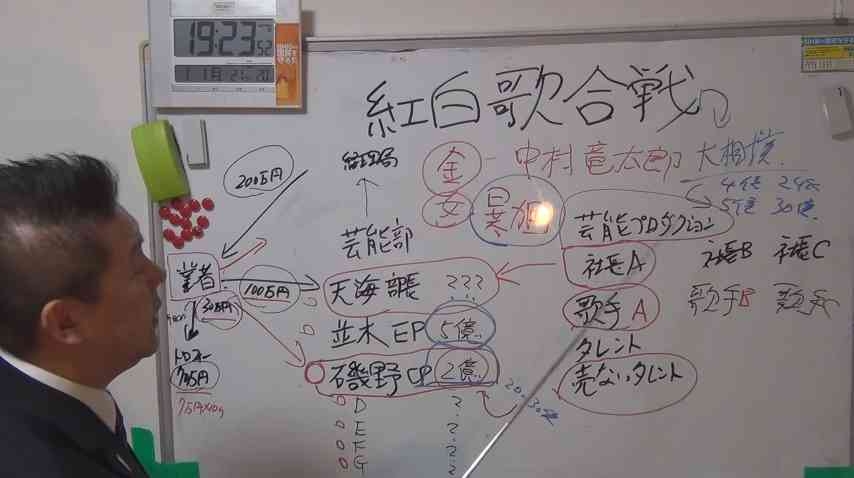 19:23 52
紅白歌合戦
金 - 中村竜太郎 大相撲
女
4億
5億 30億
200万円
経理局
芸能部
芸能プロダクション
業者
100万円
天海部長 ???
社長A 社長B 社長C
30万円
並木EP 5億
歌手A 歌手B 歌手
トロフィー
磯野CP 2億
タレント
売ないタレント
20.30億
7万円
D ?
E ?
F ?
G ?